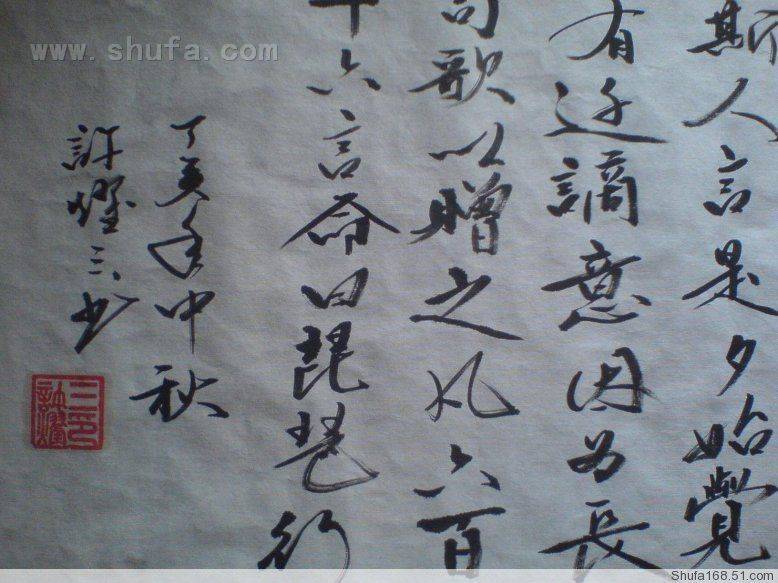 www.shufa.com
斯人言是夕始覺
有迁謫意因为長
句歌以贈之凡六百
十六言命曰琵琶行
丁亥年中秋
許燈三书
Shufa168.51.com